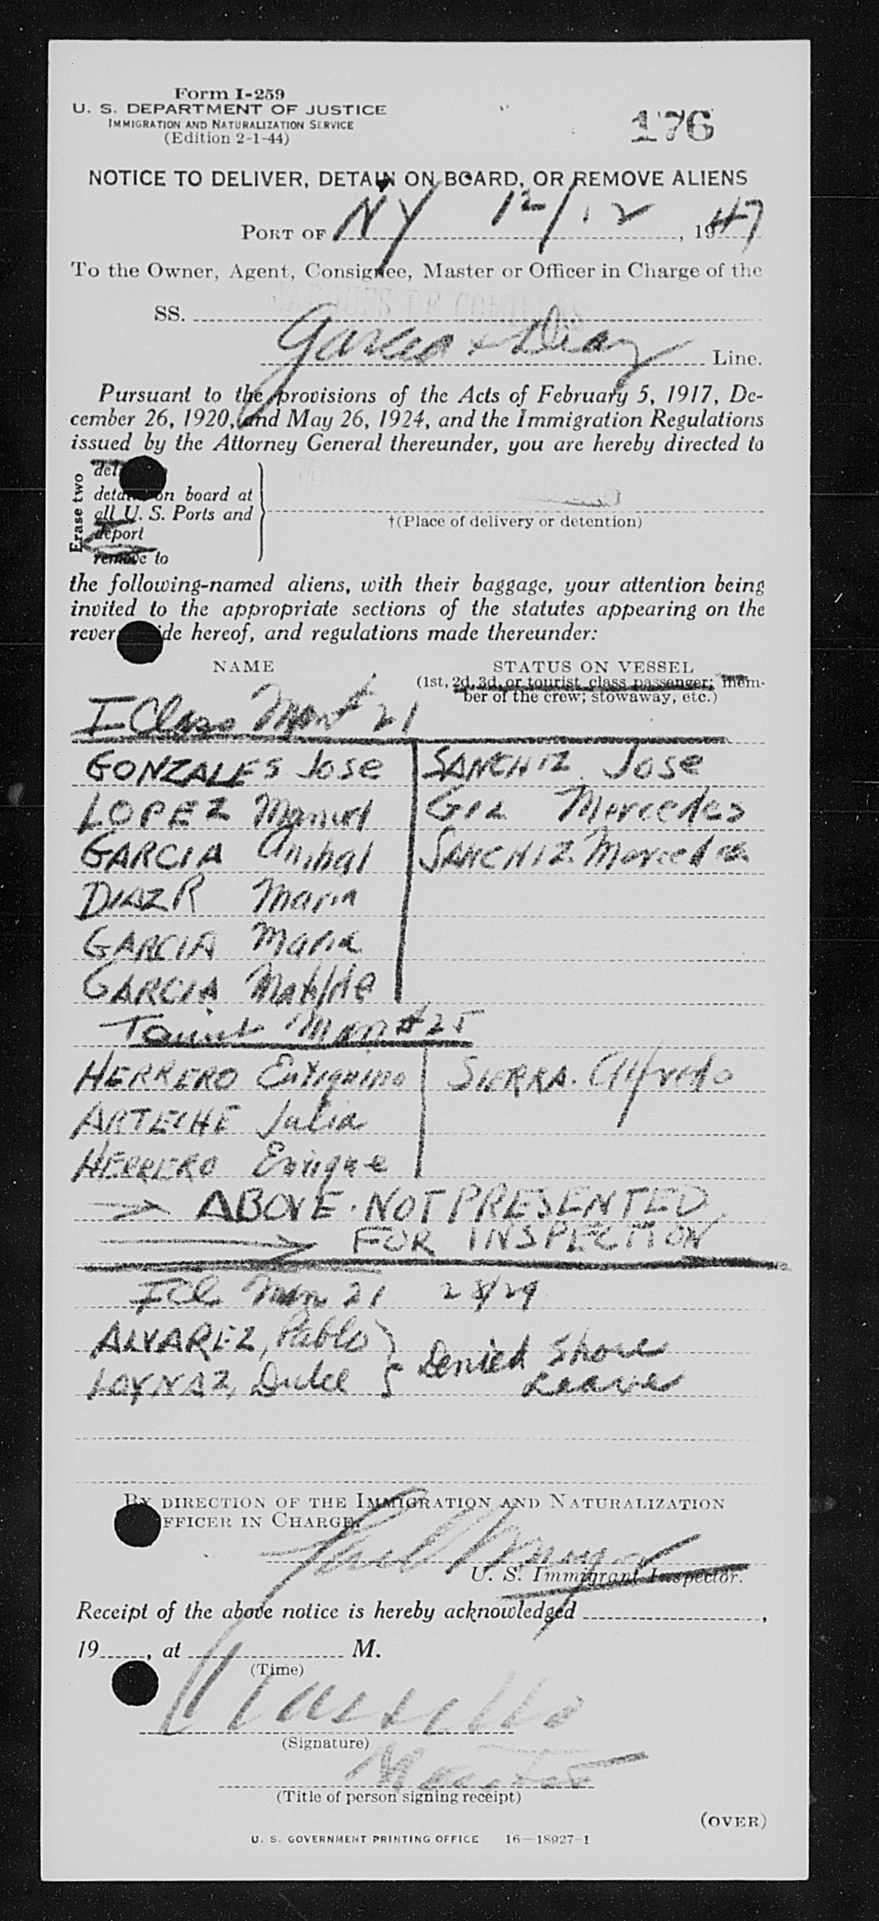 Form I-259
U. S. DEPARTMENT OF JUSTICE
IMMIGRATION AND NATURALIZATION SERVICE
(Edition 2-1-44)
176
NOTICE TO DELIVER, DETAIN ON BOARD, OR REMOVE ALIENS
PORT OF NY 12/12, 1947
To the Owner, Agent, Consignee, Master or Officer in Charge of the
SS.
Garcia & Diaz Line.
Pursuant to the provisions of the Acts of February 5, 1917, De-
cember 26, 1920, and May 26, 1924, and the Immigration Regulations
issued by the Attorney General thereunder, you are hereby directed to
Erase two
detain on board at
all U. S. Ports and
deport
remove to
†(Place of delivery or detention)
the following-named aliens, with their baggage, your attention being
invited to the appropriate sections of the statutes appearing on the
reverse side hereof, and regulations made thereunder:
NAME STATUS ON VESSEL
(1st, 2d, 3d, or tourist class passenger; mem-
ber of the crew; stowaway, etc.)
I Class Man # 21
GONZALES Jose SANCHIZ Jose
LOPEZ Manuel GIL Mercedes
GARCIA Anibal SANCHIZ Mercedes
DIAZ R Maria
GARCIA Maria
GARCIA Matilde
Tourist Man # 25
HERRERO SIERRA. Alfredo
ARTECHE Julia
HERRERO Enrique
ABOVE. NOT PRESENTED
FOR INSPECTION
I Cl. Man 21 28/29
ALVAREZ, Pablo } Denied Shore
LOYNAZ, Dulce Leave
BY DIRECTION OF THE IMMIGRATION AND NATURALIZATION
OFFICER IN CHARGE.
U. S. Immigrant Inspector.
Receipt of the above notice is hereby acknowledged ,
19 , at M.
(Time)
(Signature)
Master
(Title of person signing receipt)
(OVER)
U. S. GOVERNMENT PRINTING OFFICE 16—18927-1